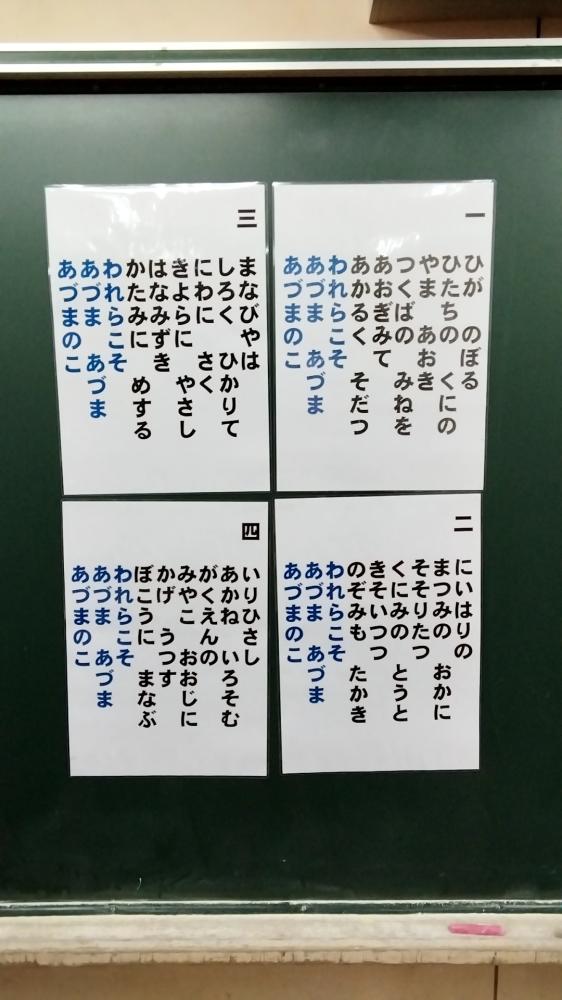 一
ひが のぼる
ひたちの くにの
やま あおき
つくばの みねを
あおぎみて
あかるく そだつ
われらこそ
あづま あづま
あづまのこ
二
にいはりの
まつみの おかに
そそりたつ
くにみの とうと
きそいつつ
のぞみも たかき
われらこそ
あづま あづま
あづまのこ
三
まなびやは
しろく ひかりて
にわに さく
きよらに やさし
はなみずき
かたみに めする
われらこそ
あづま あづま
あづまのこ
四
いりひさし
あかね いろそむ
がくえんの
みやこ おおじに
かげ うつす
ぼこうに まなぶ
われらこそ
あづま あづま
あづまのこ